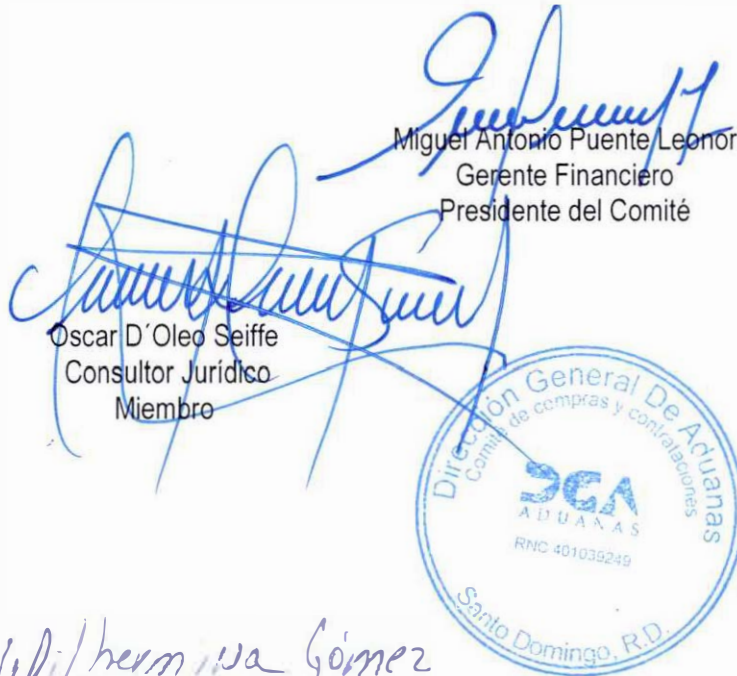 Miguel Antonio Puente Leonor
Gerente Financiero
Presidente del Comité
Oscar D´Oleo Seiffe
Consultor Jurídico
Miembro
Dirección General De Aduanas
Comité de compras y contrataciones
DGA
ADUANAS
RNC 401039249
Santo Domingo, R.D.
Gómez